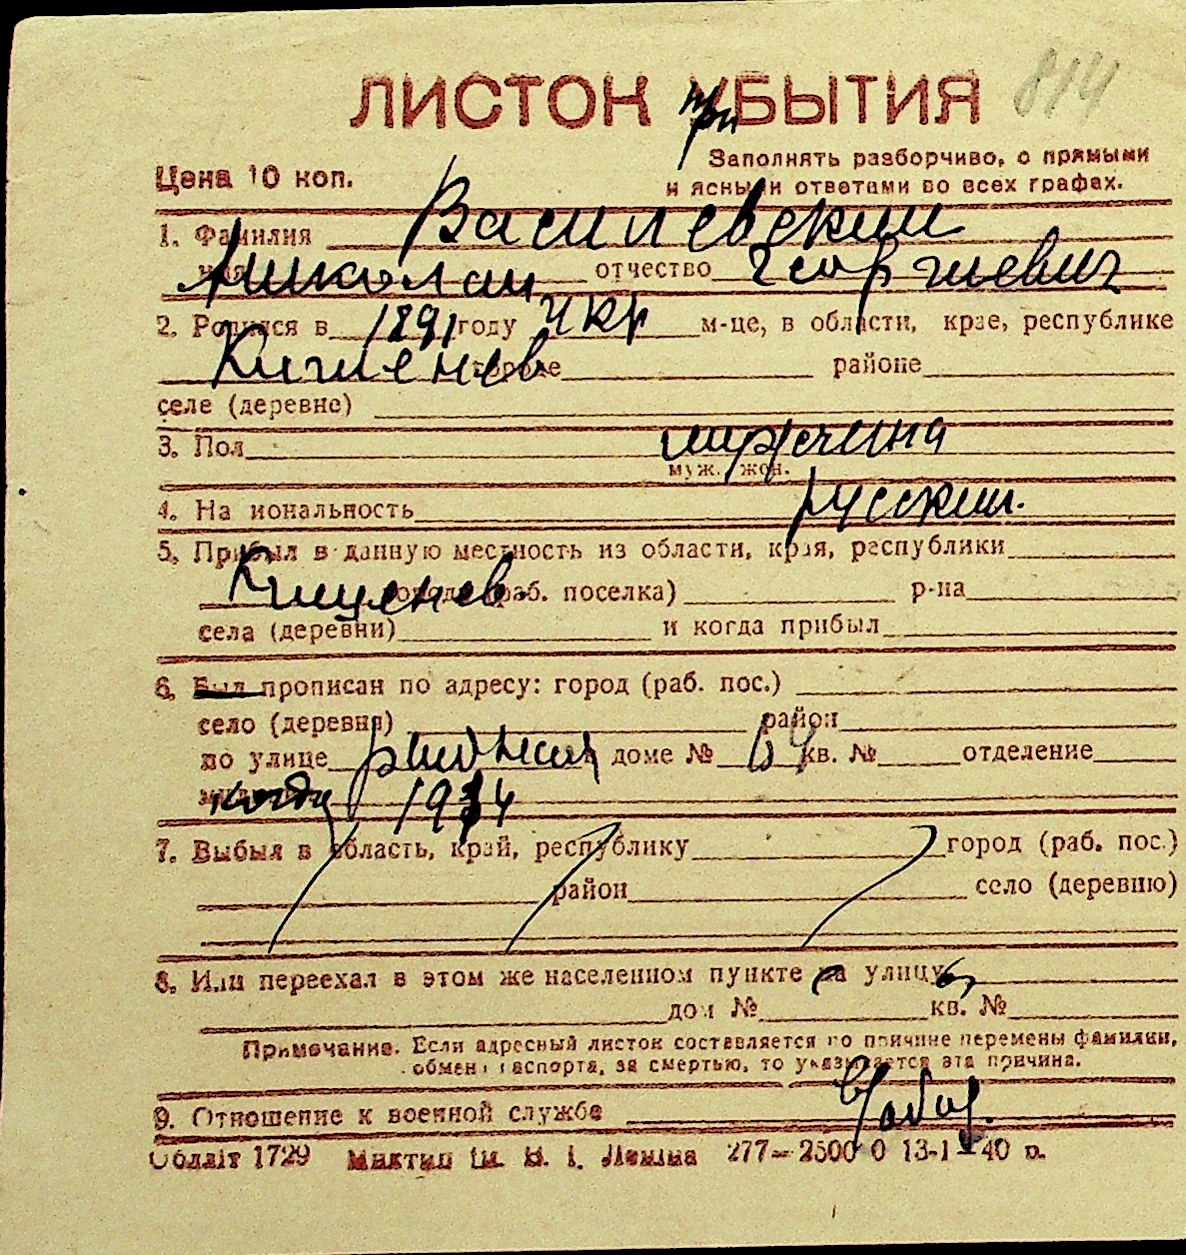 814
ЛИСТОК УБЫТИЯ
при
Цена 10 коп.
Заполнять разборчиво, с прямыми
и ясными ответами во всех графах.
1. Фамилия Василевский
имя Николай отчество Георгиевич
2. Родился в 1891 году м-це, в области, крае, республике
Кишенев городе районе
селе (деревне)
3. Пол мужчина
муж. жен.
4. Национальность русский.
5. Прибыл в данную местность из области, края, республики
Кишенев. города (раб. поселка) р-на
села (деревни) и когда прибыл
6. Был прописан по адресу: город (раб. пос.)
село (деревня) район
по улице доме № 64 кв. № отделение
когда 1934
7. Выбыл в область, край, республику город (раб. пос.)
район село (деревню)
8. Или переехал в этом же населенном пункте на улицу
дом № кв. №
Примечание. Если адресный листок составляется по причине перемены фамилии,
обмена паспорта, за смертью, то указывается эта причина.
9. Отношение к военной службе
Обллiт 1729 Миктип iм. В. I. Ленiна 277—2500 0 13-1 40 р.